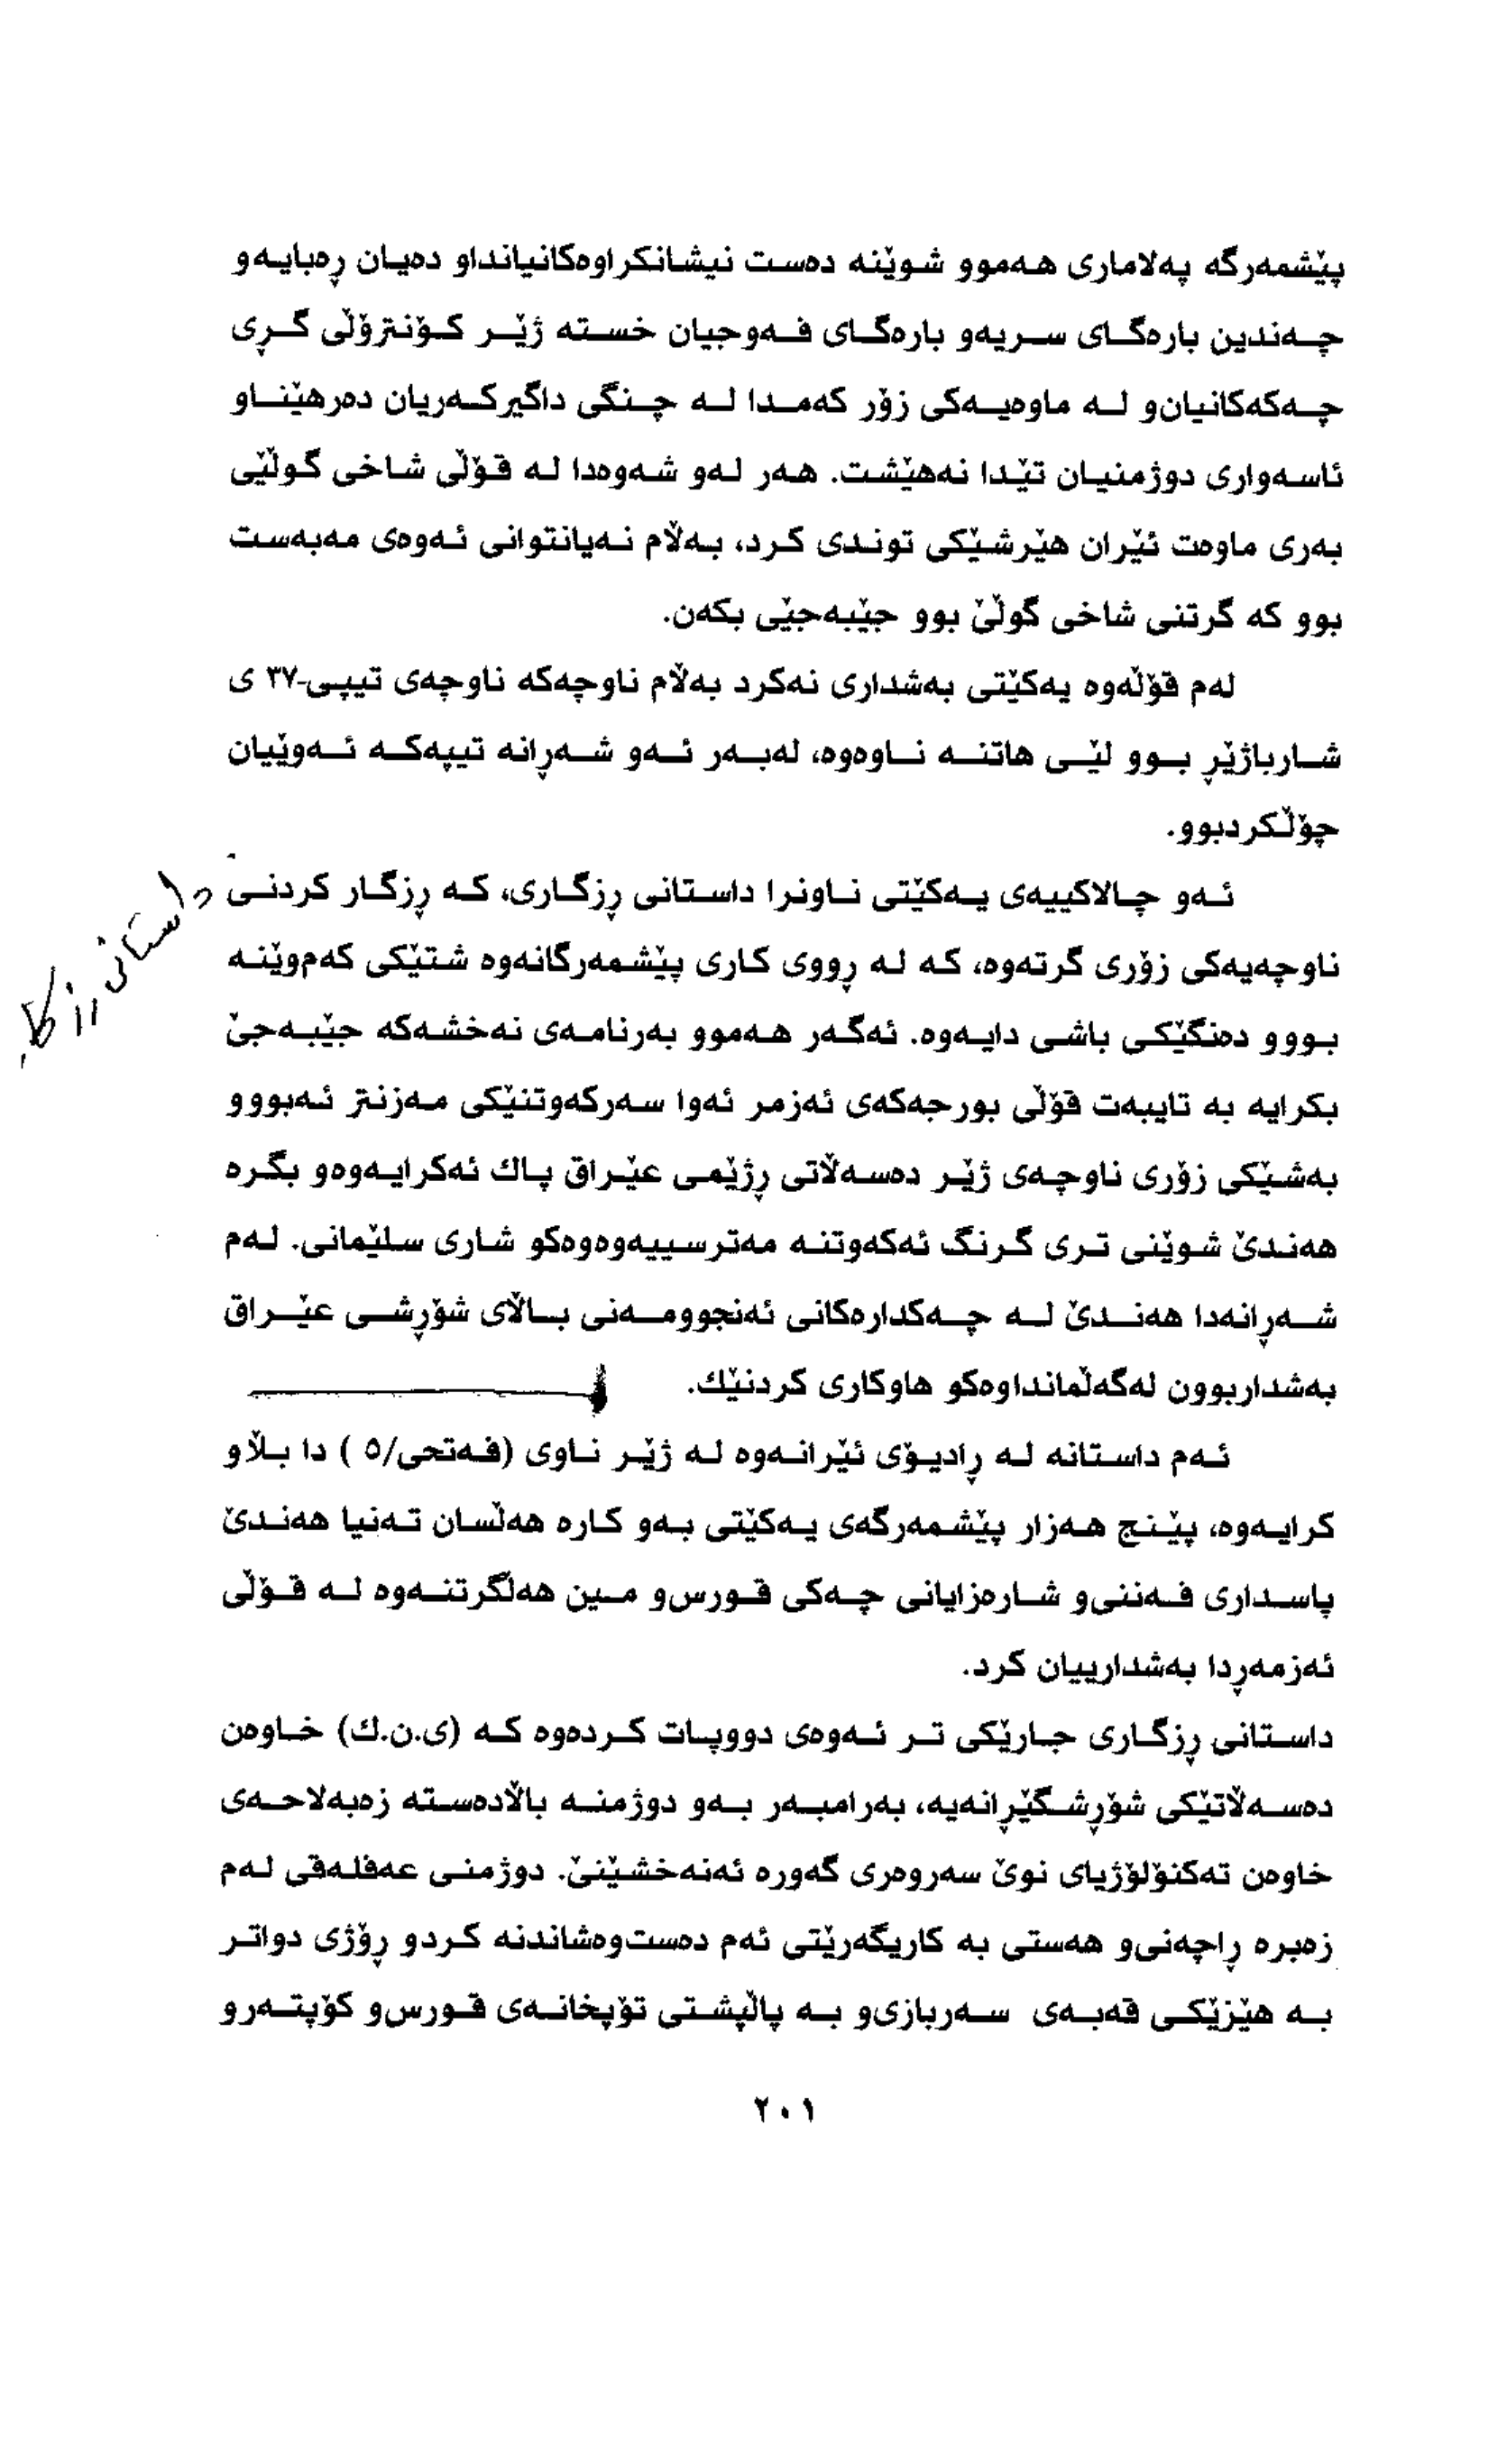 پێشمەرگە پەلاماری هەموو شوێنە دەست نیشانکراوەکانیانداو دەیان ڕەبایەو
چەندین بارەگای سریەو بارەگای فەوجیان خستە ژێر کۆنترۆڵی گڕی
چەکەکانیان‌و لە ماوەیەکی زۆر کەمدا لە چنگی داگیرکەریان دەرهێناو
ئاسەواری دوژمنیان تێدا نەهێشت. هەر لەو شەوەدا لە قۆڵی شاخی گوڵێی
بەری ماوەت ئێران هێرشێکی توندی کرد، بەڵام نەیانتوانی ئەوەی مەبەست
بوو کە گرتنی شاخی گوڵێ بوو جێبەجێی بکەن.
لەم قۆڵەوە یەکێتی بەشداری نەکرد بەڵام ناوچەکە ناوچەی تیپی-٣٧ ی
شارباژێڕ بوو لێی هاتنە ناوەوە، لەبەر ئەو شەڕانە تیپەکە ئەوێیان
چۆڵکردبوو.
ئەو چالاکییەی یەکێتی ناونرا داستانی ڕزگاری، کە ڕزگار کردنی
ناوچەیەکی زۆری گرتەوە، کە لە ڕووی کاری پێشمەرگانەوە شتێکی کەم‌وێنە
بووو دەنگێکی باشی دایەوە. ئەگەر هەموو بەرنامەی نەخشەکە جێبەجێ
بکرایە بە تایبەت قۆڵی بورجەکەی ئەزمر ئەوا سەرکەوتنێکی مەزنتر ئەبووو
بەشێکی زۆری ناوچەی ژێر دەسەڵاتی ڕژێمی عێراق پاك ئەکرایەوەو بگرە
هەندێ شوێنی تری گرنگ ئەکەوتنە مەترسییەوەوەکو شاری سلێمانی. لەم
شەڕانەدا هەندێ لە چەکدارەکانی ئەنجوومەنی باڵای شۆڕشی عێراق
بەشداربوون لەگەڵمانداوەکو هاوکاری کردنێك.
ئەم داستانە لە ڕادیۆی ئێرانەوە لە ژێر ناوی (فەتحی/٥ ) دا بڵاو
کرایەوە، پێنج هەزار پێشمەرگەی یەکێتی بەو کارە هەڵسان تەنیا هەندێ
پاسداری فەننی‌و شارەزایانی چەکی قورس‌و مین هەڵگرتنەوە لە قۆڵی
ئەزمەڕدا بەشدارییان کرد.
داستانی ڕزگاری جارێکی تر ئەوەی دووپات کردەوە کە (ی.ن.ك) خاوەن
دەسەڵاتێکی شۆڕشگێڕانەیە، بەرامبەر بەو دوژمنە باڵادەستە زەبەلاحەی
خاوەن تەکنۆلۆژیای نوێ سەروەری گەورە ئەنەخشێنێ. دوژمنی عەفلەقی لەم
زەبرە ڕاچەنی‌و هەستی بە کاریگەرێتی ئەم دەست‌وەشاندنە کردو ڕۆژی دواتر
بە هێزێکی قەبەی سەربازی‌و بە پاڵپشتی تۆپخانەی قورس‌و کۆپتەرو
٢٠١
داستانی